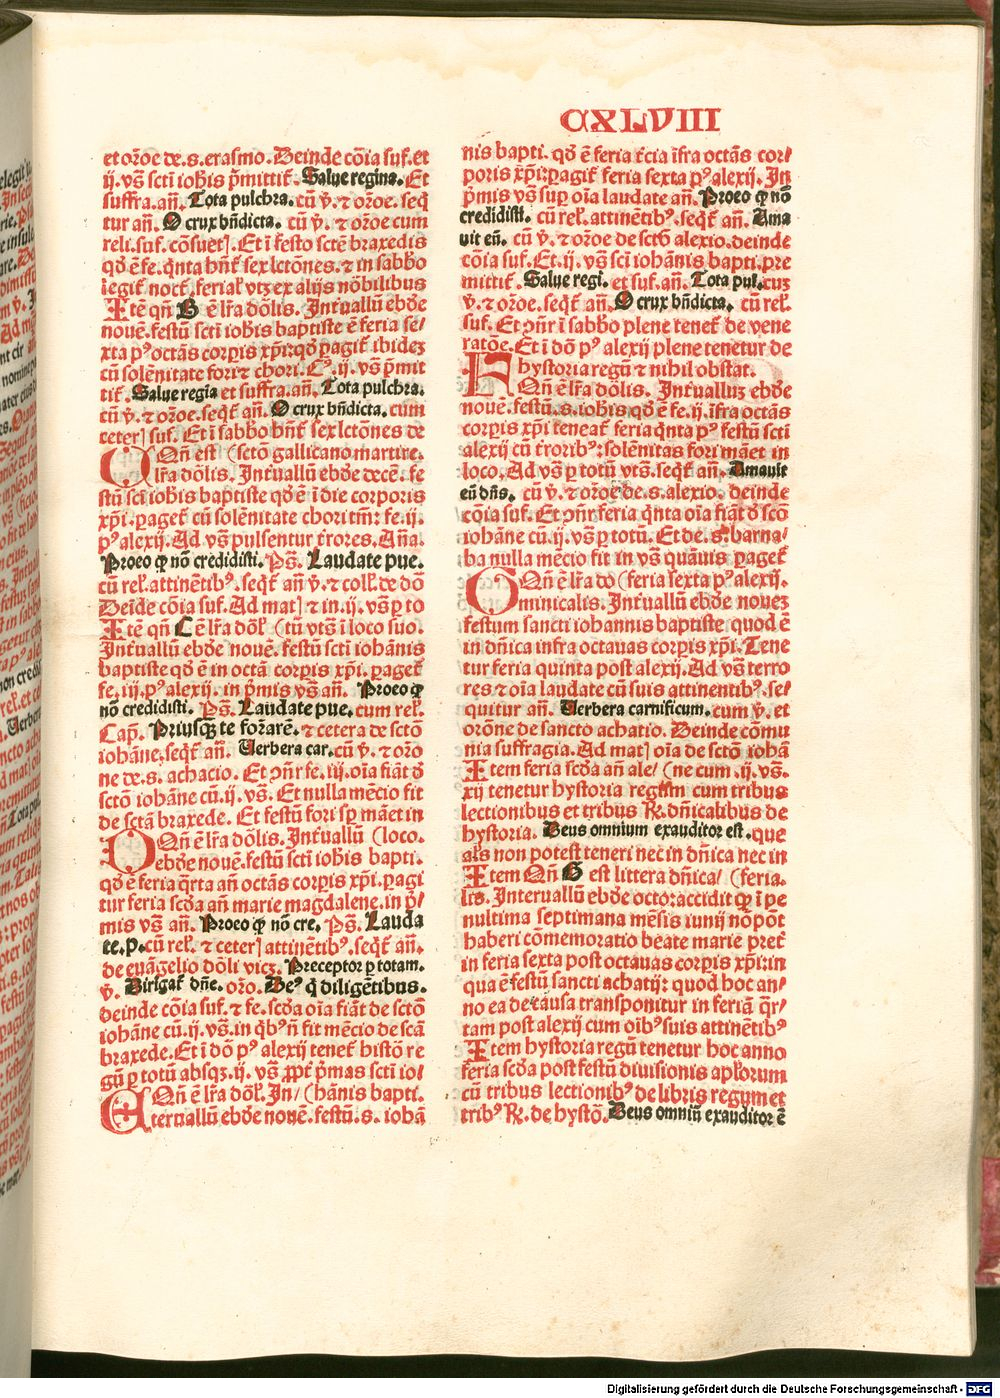 CXLVIII
et or̄oe de. s. erasmo. Deinde cōia suf. et
ij. vs̄ scti ioh̄is p̄mittit̄. Salue regina. Et
suffra. an̄. Tota pulchra. cū v̄. ⁊ or̄oe. seq̄
tur an̄. O crux bn̄dicta. cū v̄. ⁊ or̄oe cum
reli. suf. cōsuet]. Et ī festo sctē braxedis
qd̄ ē fe. q̄nta hn̄t̄ sex lctōnes. ⁊ in sabb̄o
legit̄ noct̄. ferial̄ vtz ex alijs nōbilibus
Itē qn̄ B ē lr̄a dō̄lis. Int̄uallū ebd̄e
nouē. festū scti ioh̄is baptiste ē feria se/
xta pꝰ octās corpis xp̄i: qd̄ pagit̄ ibidez
cū solēnitate fori ⁊ chori. Cꝰ. ij. vs̄ p̄mit
tit̄. Salue regia et suffra an̄. Tota pulchra.
cū v̄. ⁊ or̄oe. seq̄t̄ an̄. O crux bn̄dicta. cum
ceter] suf. Et ī sabb̄o hn̄t̄ sex lctōnes de
Qn̄ est (sctō gallicano martire.
lr̄a dō̄lis. Int̄uallū ebd̄e decē. fe
stū sci ioh̄is baptiste qd̄ ē ī die corporis
xp̄i. paget̄ cū solēnitate chori tm̄: fe. ij.
pꝰ alexij. Ad vs̄ pulsentur t̄rores. Añа.
Proeo ꝙ nō credidisti. Ps̄. Laudate pue.
cū rel̄. attinētibꝰ. seq̄t̄ an̄ v̄. ⁊ coll̄. de dō
Deīde cōia suf. Ad mat] ⁊ in. ij. vs̄ p to
Itē qn̄ C ē lr̄a dō̄l̄ (tū vts̄ ī loco suo.
Int̄uallū ebd̄e nouē. festū scti ioh̄anis
baptiste qd̄ ē in octā corpis xp̄i. paget̄
fe. iij. pꝰ alexij. in p̄mis vs̄ an̄. Proeo ꝙ
nō credidisti. Ps̄. Laudate pue. cum rel̄.
Cap̄. Priusq̄ te forārē. ⁊ cetera de sctō
ioh̄āne. seq̄t̄ an̄. Verbera car. cū v̄. ⁊ or̄o
ne de. s. achacio. Et p̄n̄r fe. iij. oīa fiāt ō
sctō ioh̄āne cū. ij. vs̄. Et nulla mēcio fit
de sctā braxede. Et festū fori sp māet in
DQn̄ ē lr̄a dō̄lis. Int̄uallū (loco.
ebd̄e nouē. festū scti ioh̄is bapti.
qd̄ ē feria q̄rta an̄ octās corpis xp̄i. pagi
tur feria scd̄a an̄ marie magdalene. in p̄/
mis vs̄ an̄. Proeo ꝙ nō cre. Ps̄. Lauda
te. p. cū rel̄. ⁊ ceter] attinētibꝰ. seq̄t̄ an̄.
de euāgelio dō̄li vicz. Preceptor p totam.
v̄. Dirigat̄ dn̄e. or̄o. Deꝰ q̄ diligētibus.
deinde cōia suf. ⁊ fe. scd̄a oīa fiāt de sctō
ioh̄āne cū. ij. vs̄. in q̄bꝰ n̄ fit mēcio de scā
braxede. Et ī dō pꝰ alexij tenet̄ histō re
gū p totū absqz. ij. vs̄ ꝓpt̄ p̄mas scti io/
E Qn̄ ē lr̄a dō̄l̄. In/ (h̄anis bapti.
teruallū ebd̄e nouē. festū. s. ioh̄ā
nis bapti. qd̄ ē feria t̄cia īfra octās cor/
poris xp̄i: pagit̄ feria sexta pꝰ alexij. In
p̄mis vs̄ sup oīa laudate an̄. Proeo ꝙ nō
credidisti. cū rel̄. attinētibꝰ. seq̄t̄ an̄. Ama
uit eū. cū v̄. ⁊ or̄oe de sctō alexio. deinde
cōia suf. Et. ij. vs̄ sci ioh̄anis bapti. pre
mittit̄. Salue regi. et suf. an̄. Tota pul. cuz
v̄. ⁊ or̄oe. seq̄t̄ an̄. O crux bn̄dicta. cū rel̄.
suf. Et p̄n̄r ī sabb̄o plene tenet̄ de vene
ratōe. Et ī dō pꝰ alexij plene tenetur de
F hystoria regū ⁊ nihil obstat.
Qn̄ ē lr̄a dō̄lis. Int̄ualluz ebd̄e
nouē. festū. s. ioh̄is qd̄ ē fe. ij. īfra octās
corpis xp̄i teneat̄ feria q̄nta pꝰ festū scti
alexij cū t̄roribꝰ: solēnitas fori māet in
loco. Ad vs̄ p totū vts̄. seq̄t̄ an̄. Amauit
eū dn̄s. cū v̄. ⁊ or̄oe de. s. alexio. deinde
cōia suf. Et p̄n̄r feria q̄nta oīa fiāt ō scō
ioh̄āne cū. ij. vs̄ p totū. Et de. s. barna/
ba nulla mēcio fit in vs̄ quāuis paget̄
GQn̄ ē lr̄a do (feria sexta pꝰ alexij.
minicalis. Int̄uallū ebd̄e nouez
festum sancti iohannis baptiste quod ē
in dn̄ica infra octauas corpis xp̄i. Tene
tur feria quinta post alexij. Ad vs̄ terro
res ⁊ oīa laudate cū suis attinentibꝰ. se/
quitur an̄. Verbera carnificum. cum v̄. et
orōne de sancto achatio. Deinde cōmu
nia suffragia. Ad mat] oīa de sctō ioh̄ā
Item feria scd̄a an̄ ale/ (ne cum. ij. vs̄.
xij tenetur hystoria regum cum tribus
lectionibus et tribus R̄. dn̄icalibus de
hystoria. Deus omnium exauditor est. que
als̄ non potest teneri nec in dn̄ica nec in
Item Qn̄ G est littera dn̄ica/ (feria.
lis. Interuallū ebd̄e octo: accidit ꝙ ī pe
nultima septimana mēsis iunij nō pōt
haberi cōmemoratio beate marie pret̄
in feria sexta post octauas corpis xp̄i: in
qua ē festū sancti achatij: quod hoc an/
no ea de causa transponitur in feriā q̄r/
tam post alexij cum oībꝰ suis attinētibꝰ
Item hystoria regū tenetur hoc anno
feria scd̄a post festū diuisionis apl̄orum
cū tribus lectionibꝰ de libris regum et
tribꝰ R̄. de hystō. Deus omniū exauditor ē
Digitalisierung gefördert durch die Deutsche Forschungsgemeinschaft - DFG